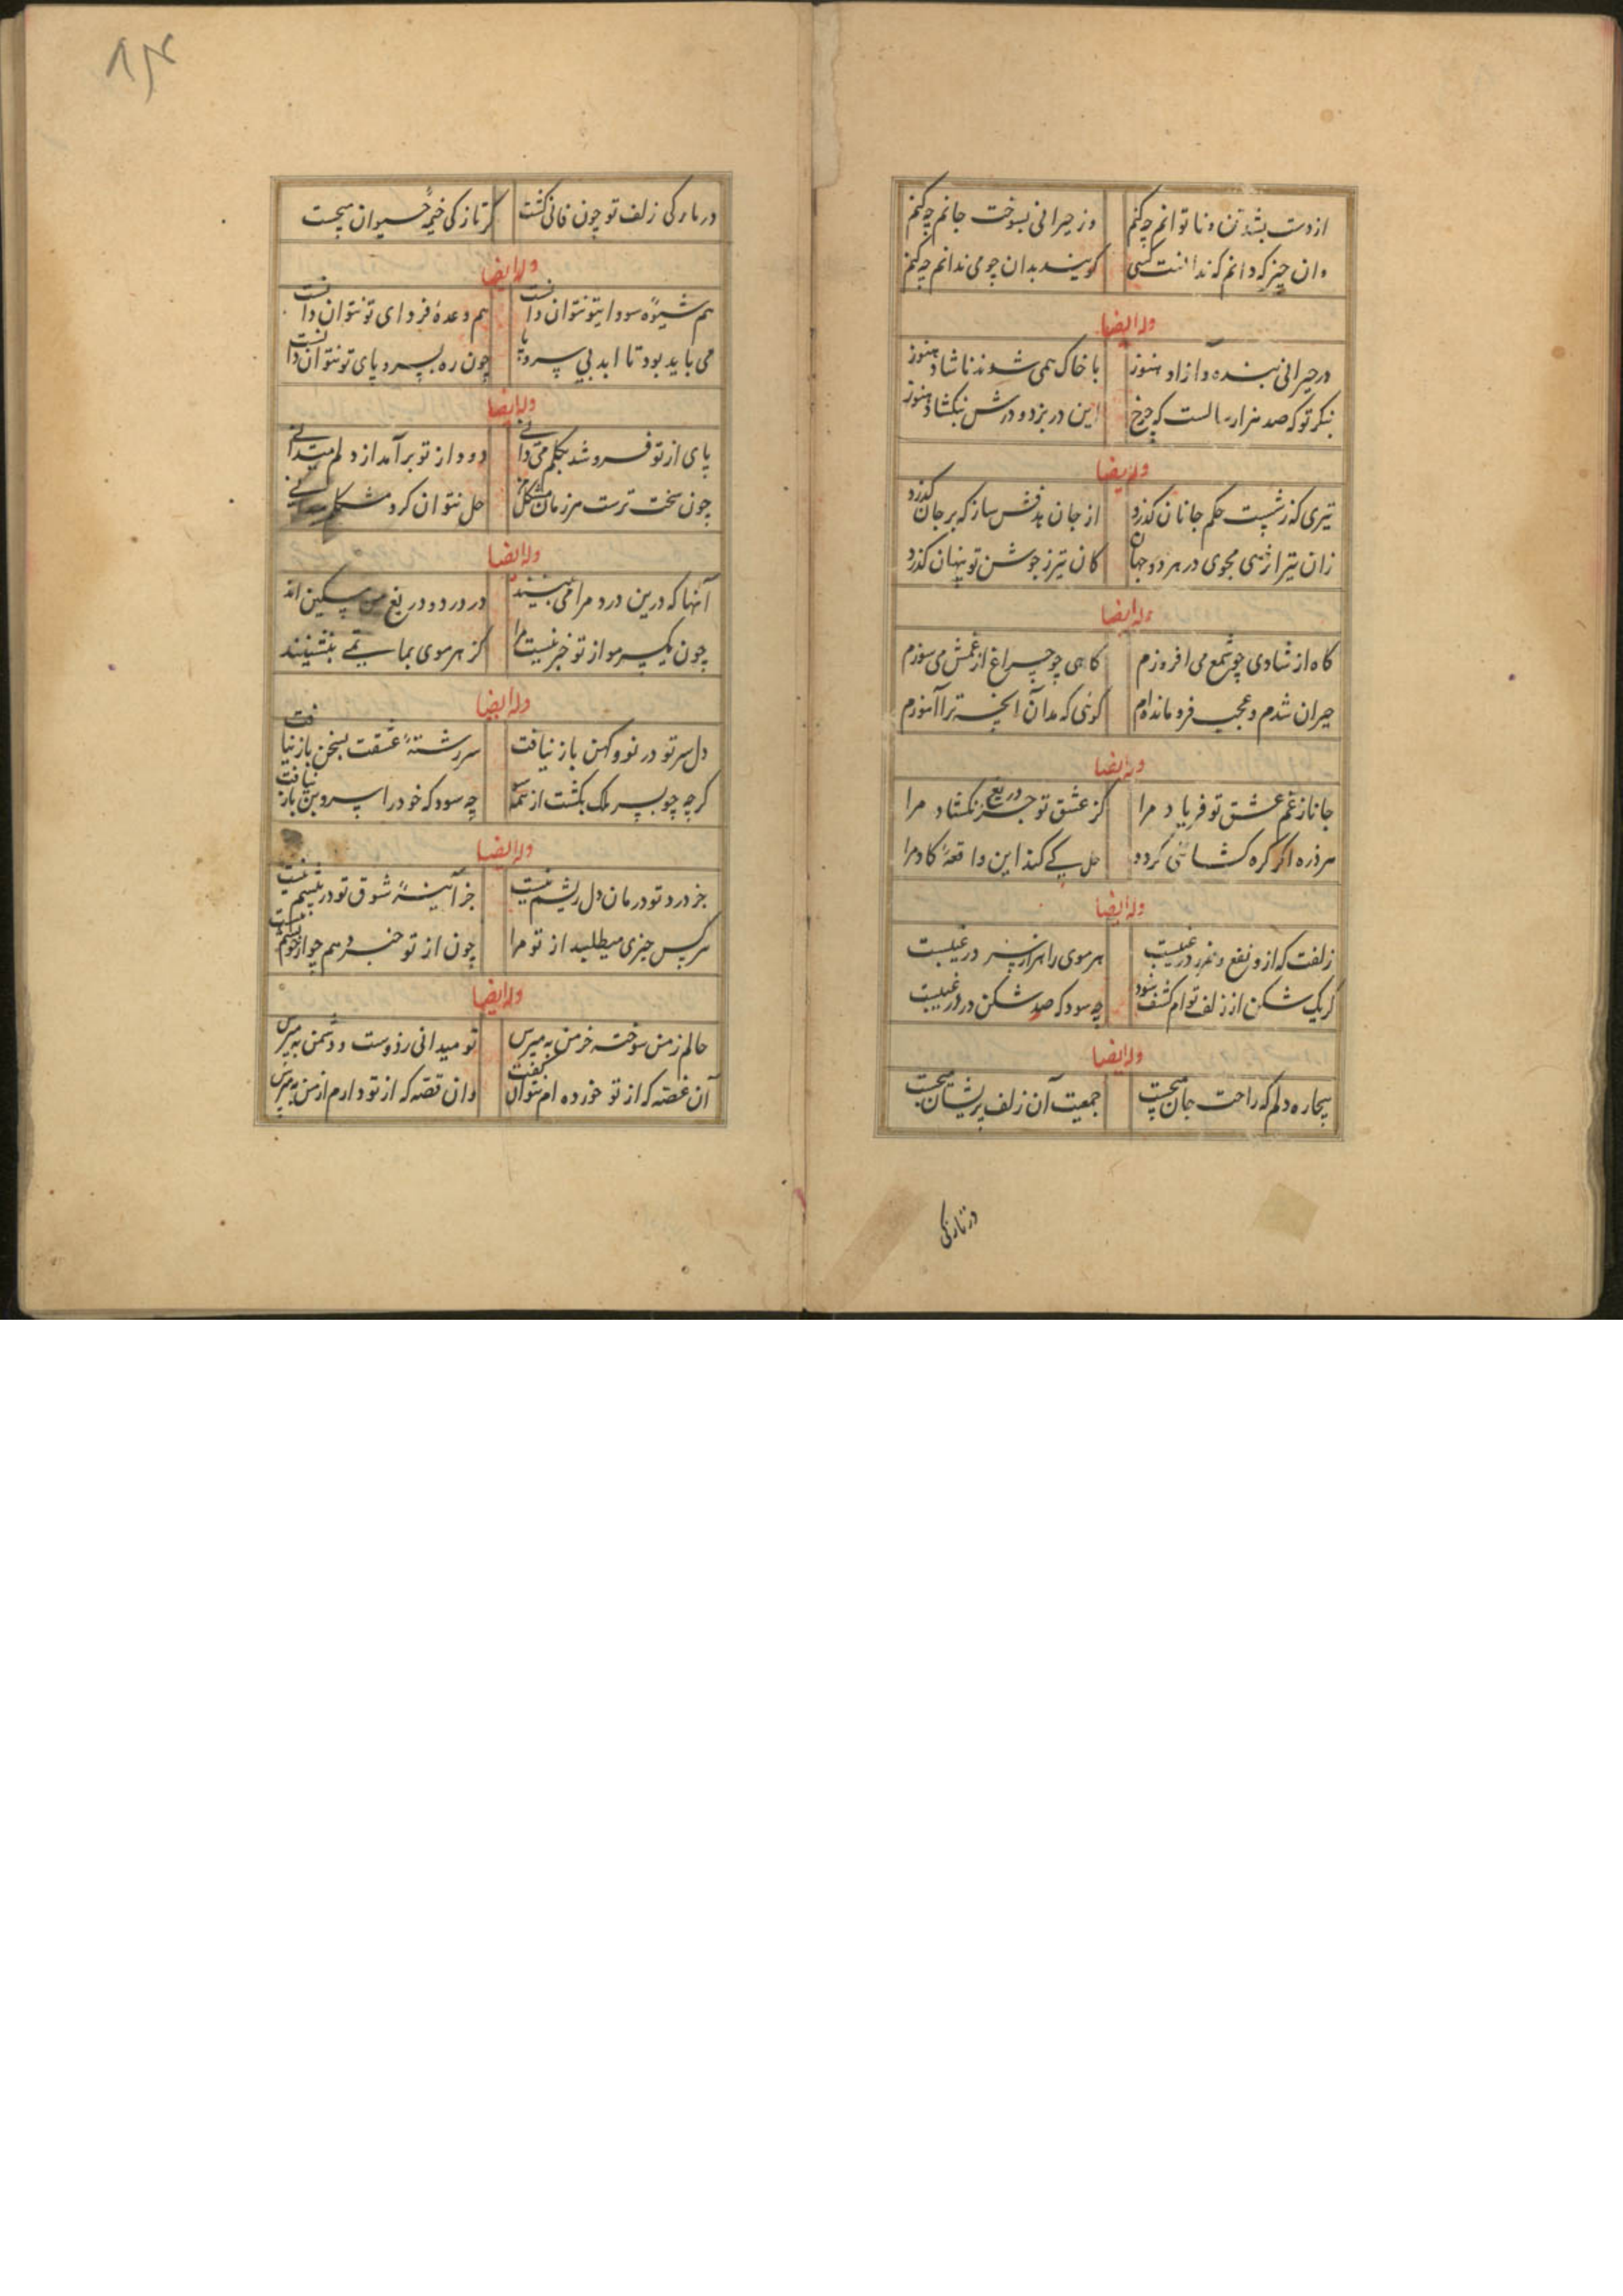 از دست بشد تن و ناتوانم چه کنم وز حیرانی بسوخت جانم چه کنم
وان چیز که دانم که ندانست کسی گویند بدان چو می ندانم چه کنم
وله ایضا
در حیرانی بنده و آزاد هنوز با خاک همی شوند ناشاد هنوز
بنگر تو که صد هزار سالست که چرخ این در بزد و درش نبگشاد هنوز
وله ایضا
تیری که ز شست حکم جانان گذرد از جان هدفش ساز که بر جان گذرد
زان تیر ازرهی مجوی در هر دو جهان کان تیر ز جوشن تو پنهان گذرد
وله ایضا
گاه از شادی چو شمع می افروزم گاهی چو چراغ از غمش می سوزم
حیران شدم و عجب فرو مانده ام گوئی که بدان آنچه ترا آموزم
وله ایضا
جانا ز غم عشق تو فریاد مرا کز عشق تو جز دریغ نگشاد مرا
هر ذره اگر گره گشائی گردد حل کی کند این واقعهٔ کافتاد مرا
وله ایضا
زلفت که ازو نفع و ضرر در غیبست هر موی را هزار سر در غیبست
گر یک شکن از زلف توام کشف شود چه سود که صد شکن در در غیبست
وله ایضا
بیچاره دلم که راحت جان میجست جمعیت آن زلف پریشان میجست
در تاریکی
در تاریکی زلف تو چون فانی گشت کز تازگی خیمهٔ حیوان میجست
وله ایضا
هم شیوهٔ سودای تو نتوان دانست هم وعدهٔ فردای تو نتوان دانست
می باید بود تا ابد بی سر و پا چون ره بسر و پای تو نتوان دانست
وله ایضا
پای از تو فرو شد بگلم می دانی دود از تو برآمد از دلم میدانی
چون سخت ترست هر زمان مشکل من حل نتوان کرد مشکلم میدانی
وله ایضا
آنها که درین درد مرا می بینند در درد و دریغ من مسکین اند
چون یک سر مو از تو خبر نیست مرا کز هر موی بماتمی بنشینند
وله ایضا
دل سر تو در نو و کهن باز نیافت سر رشتهٔ عشقت بسخن باز نیافت
گرچه چو بسر فلک بگشت از همه چه سود که خود را سر و بن باز نیافت
وله ایضا
جز درد تو درمان دل ریشم نیست جز آینهٔ شوق تو در پیشم نیست
هر کس چیزی میطلبد از تو مرا چون از تو خبر دهم چو از خویشم نیست
وله ایضا
حالم ز من سوخته خرمن به مپرس تو میدانی ز دوست و دشمن به مپرس
آن غصه که از تو خورده ام نتوان گفت وان قصه که از تو دارم از من به مپرس